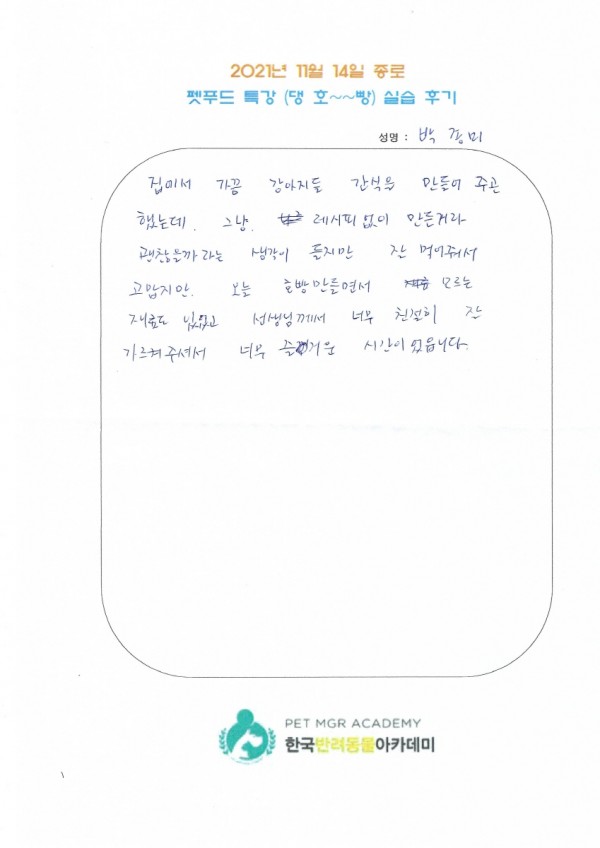 2021년 11월 14일 종로
펫푸드 특강 (댕 호~~빵) 실습 후기
성명 : 박 경미
집에서 가끔 강아지들 간식을 만들어 주곤
했는데. 그냥. 레시피없이 만든거라
괜찮을까라는 생각이 들지만 잘 먹어줘서
고맙지만. 오늘 호빵만들면서 모르는
재료도 있었고 선생님께서 너무 친절히 잘
가르쳐주셔서 너무 즐거운 시간이었읍니다.
PET MGR ACADEMY
한국반려동물아카데미